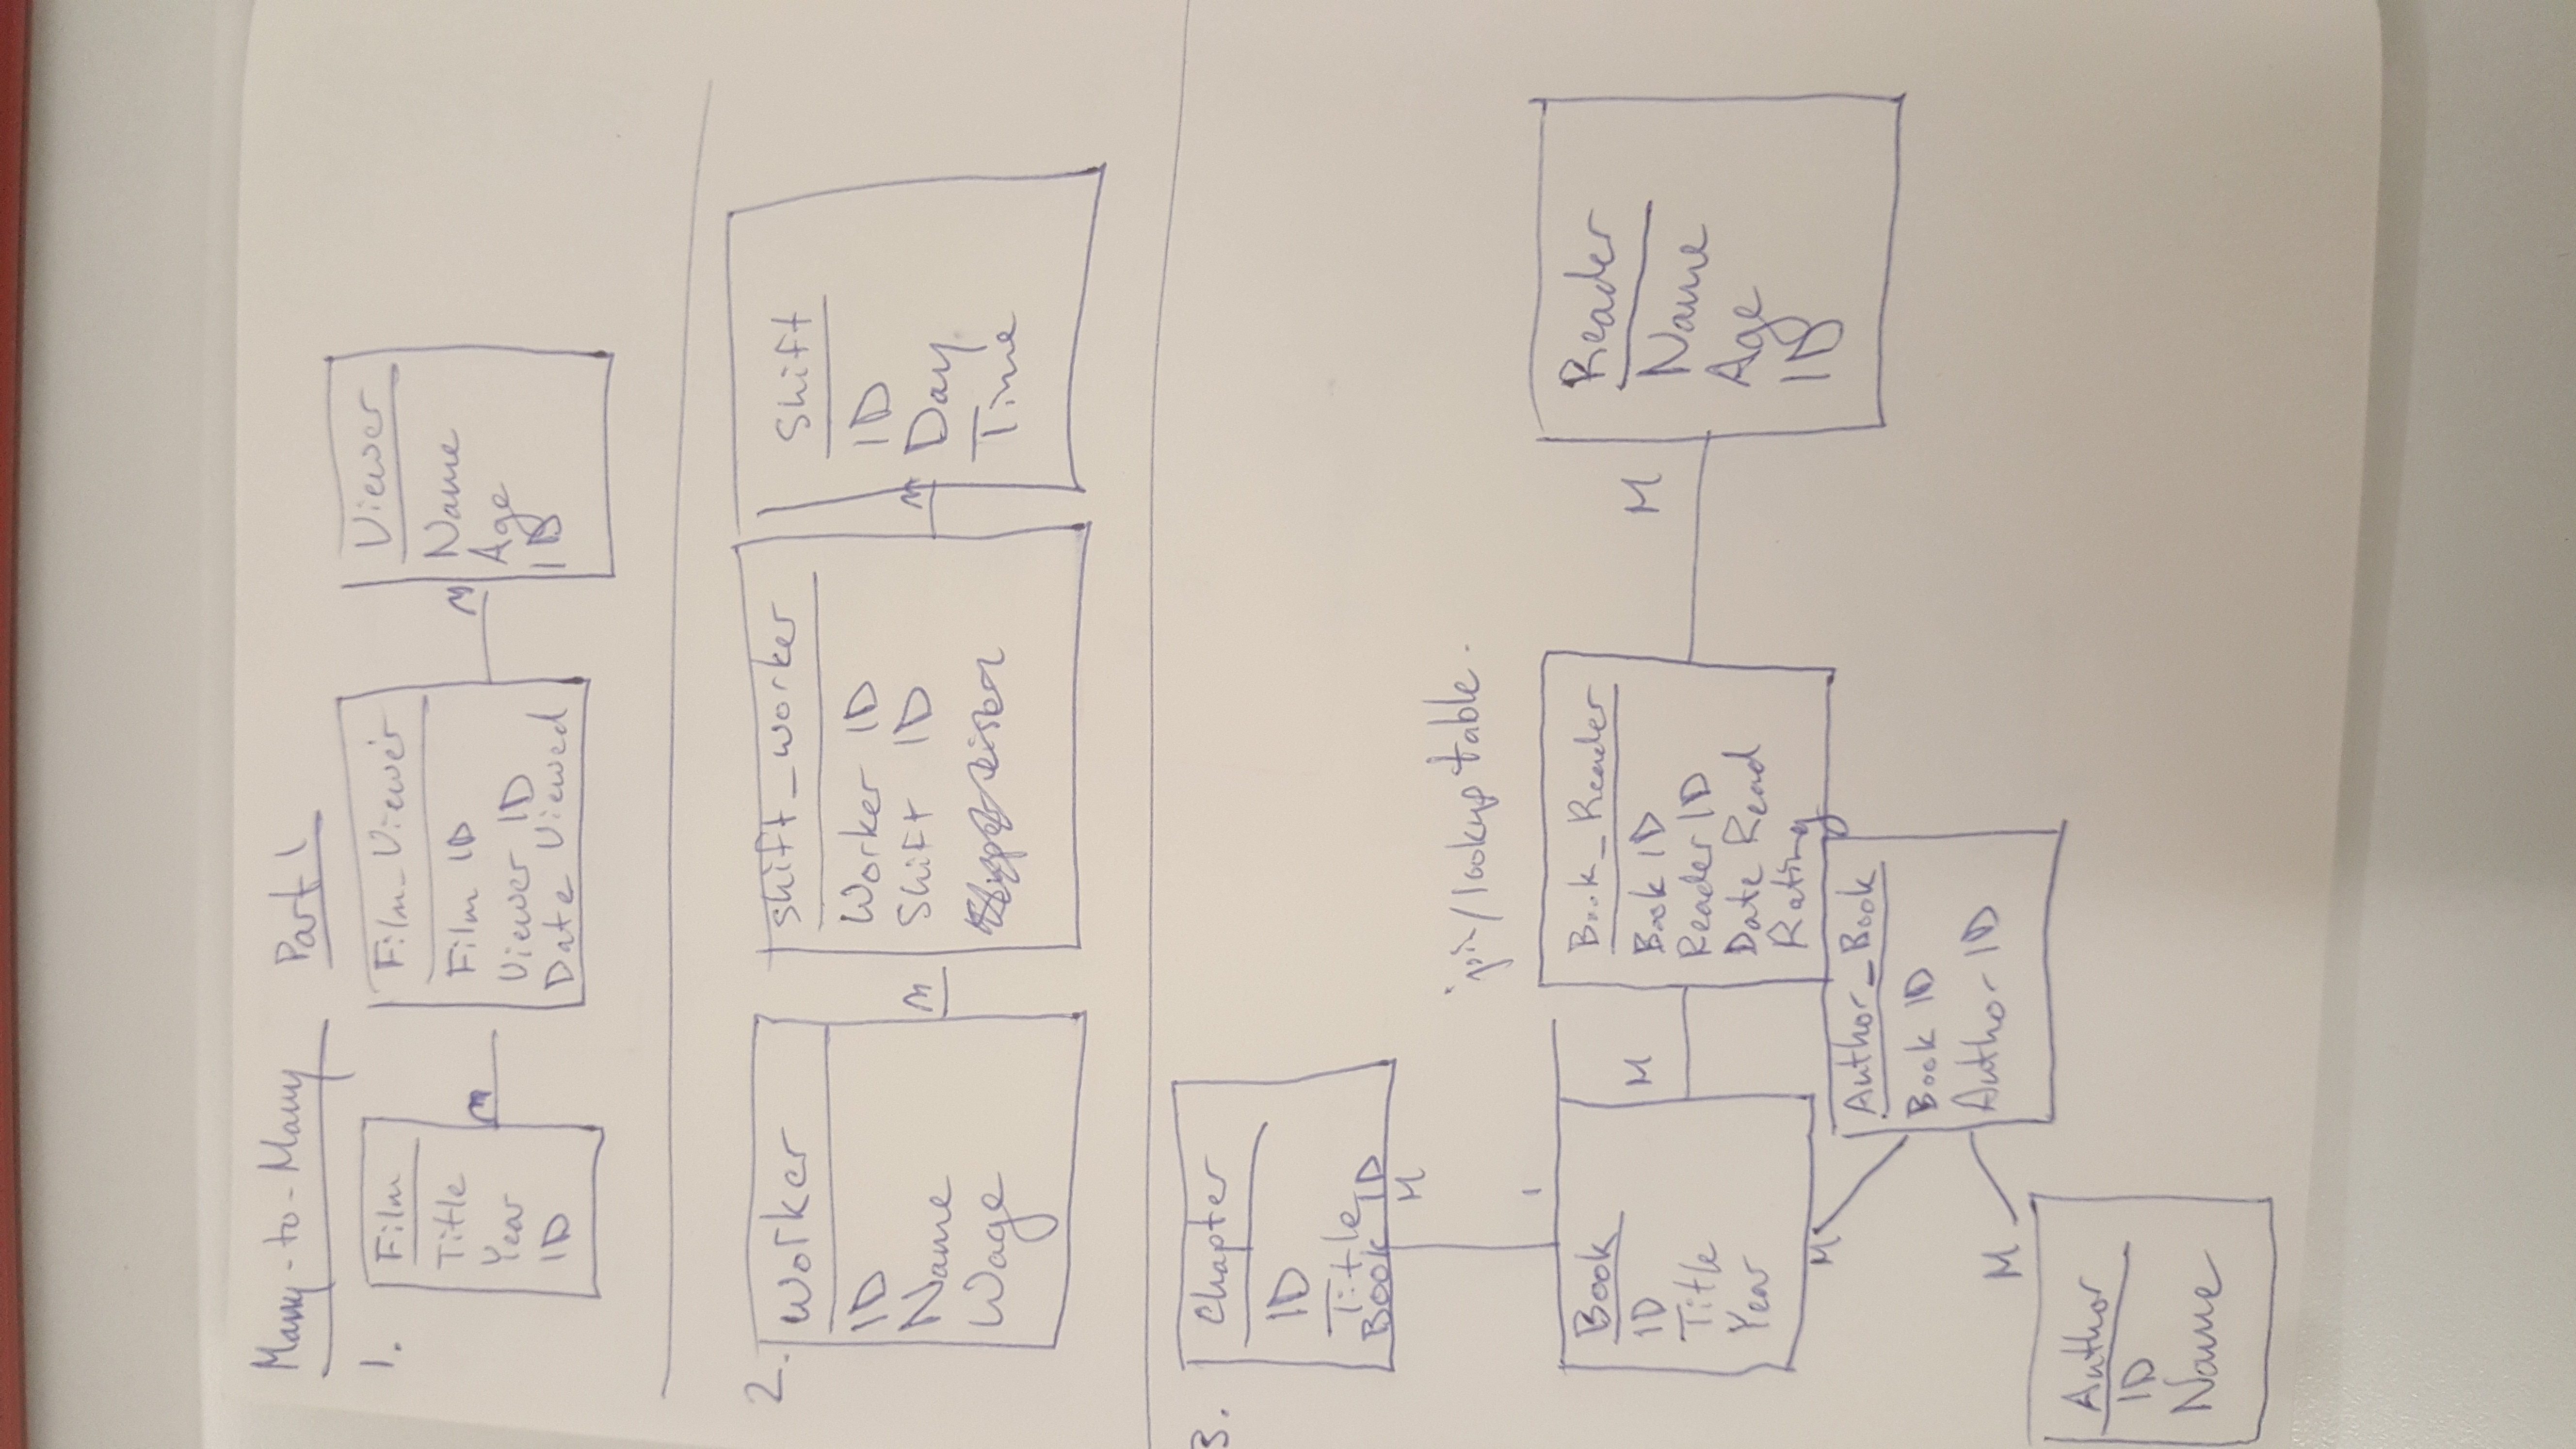 Many-to-Many Part 1
1.
Film
Title
Year
ID
M
Film_Viewer
Film ID
Viewer ID
Date Viewed
M
Viewer
Name
Age
ID
2.
Worker
ID
Name
Wage
M
shift_worker
Worker ID
Shift ID
M
Shift
ID
Day
Time
3.
Chapter
ID
Title
Book ID
M
1
join/lookup table.
Book
ID
Title
Year
M
Book_Reader
Book ID
Reader ID
Date Read
Rating
M
Reader
Name
Age
ID
M
Author_Book
Book ID
Author ID
M
Author
ID
Name